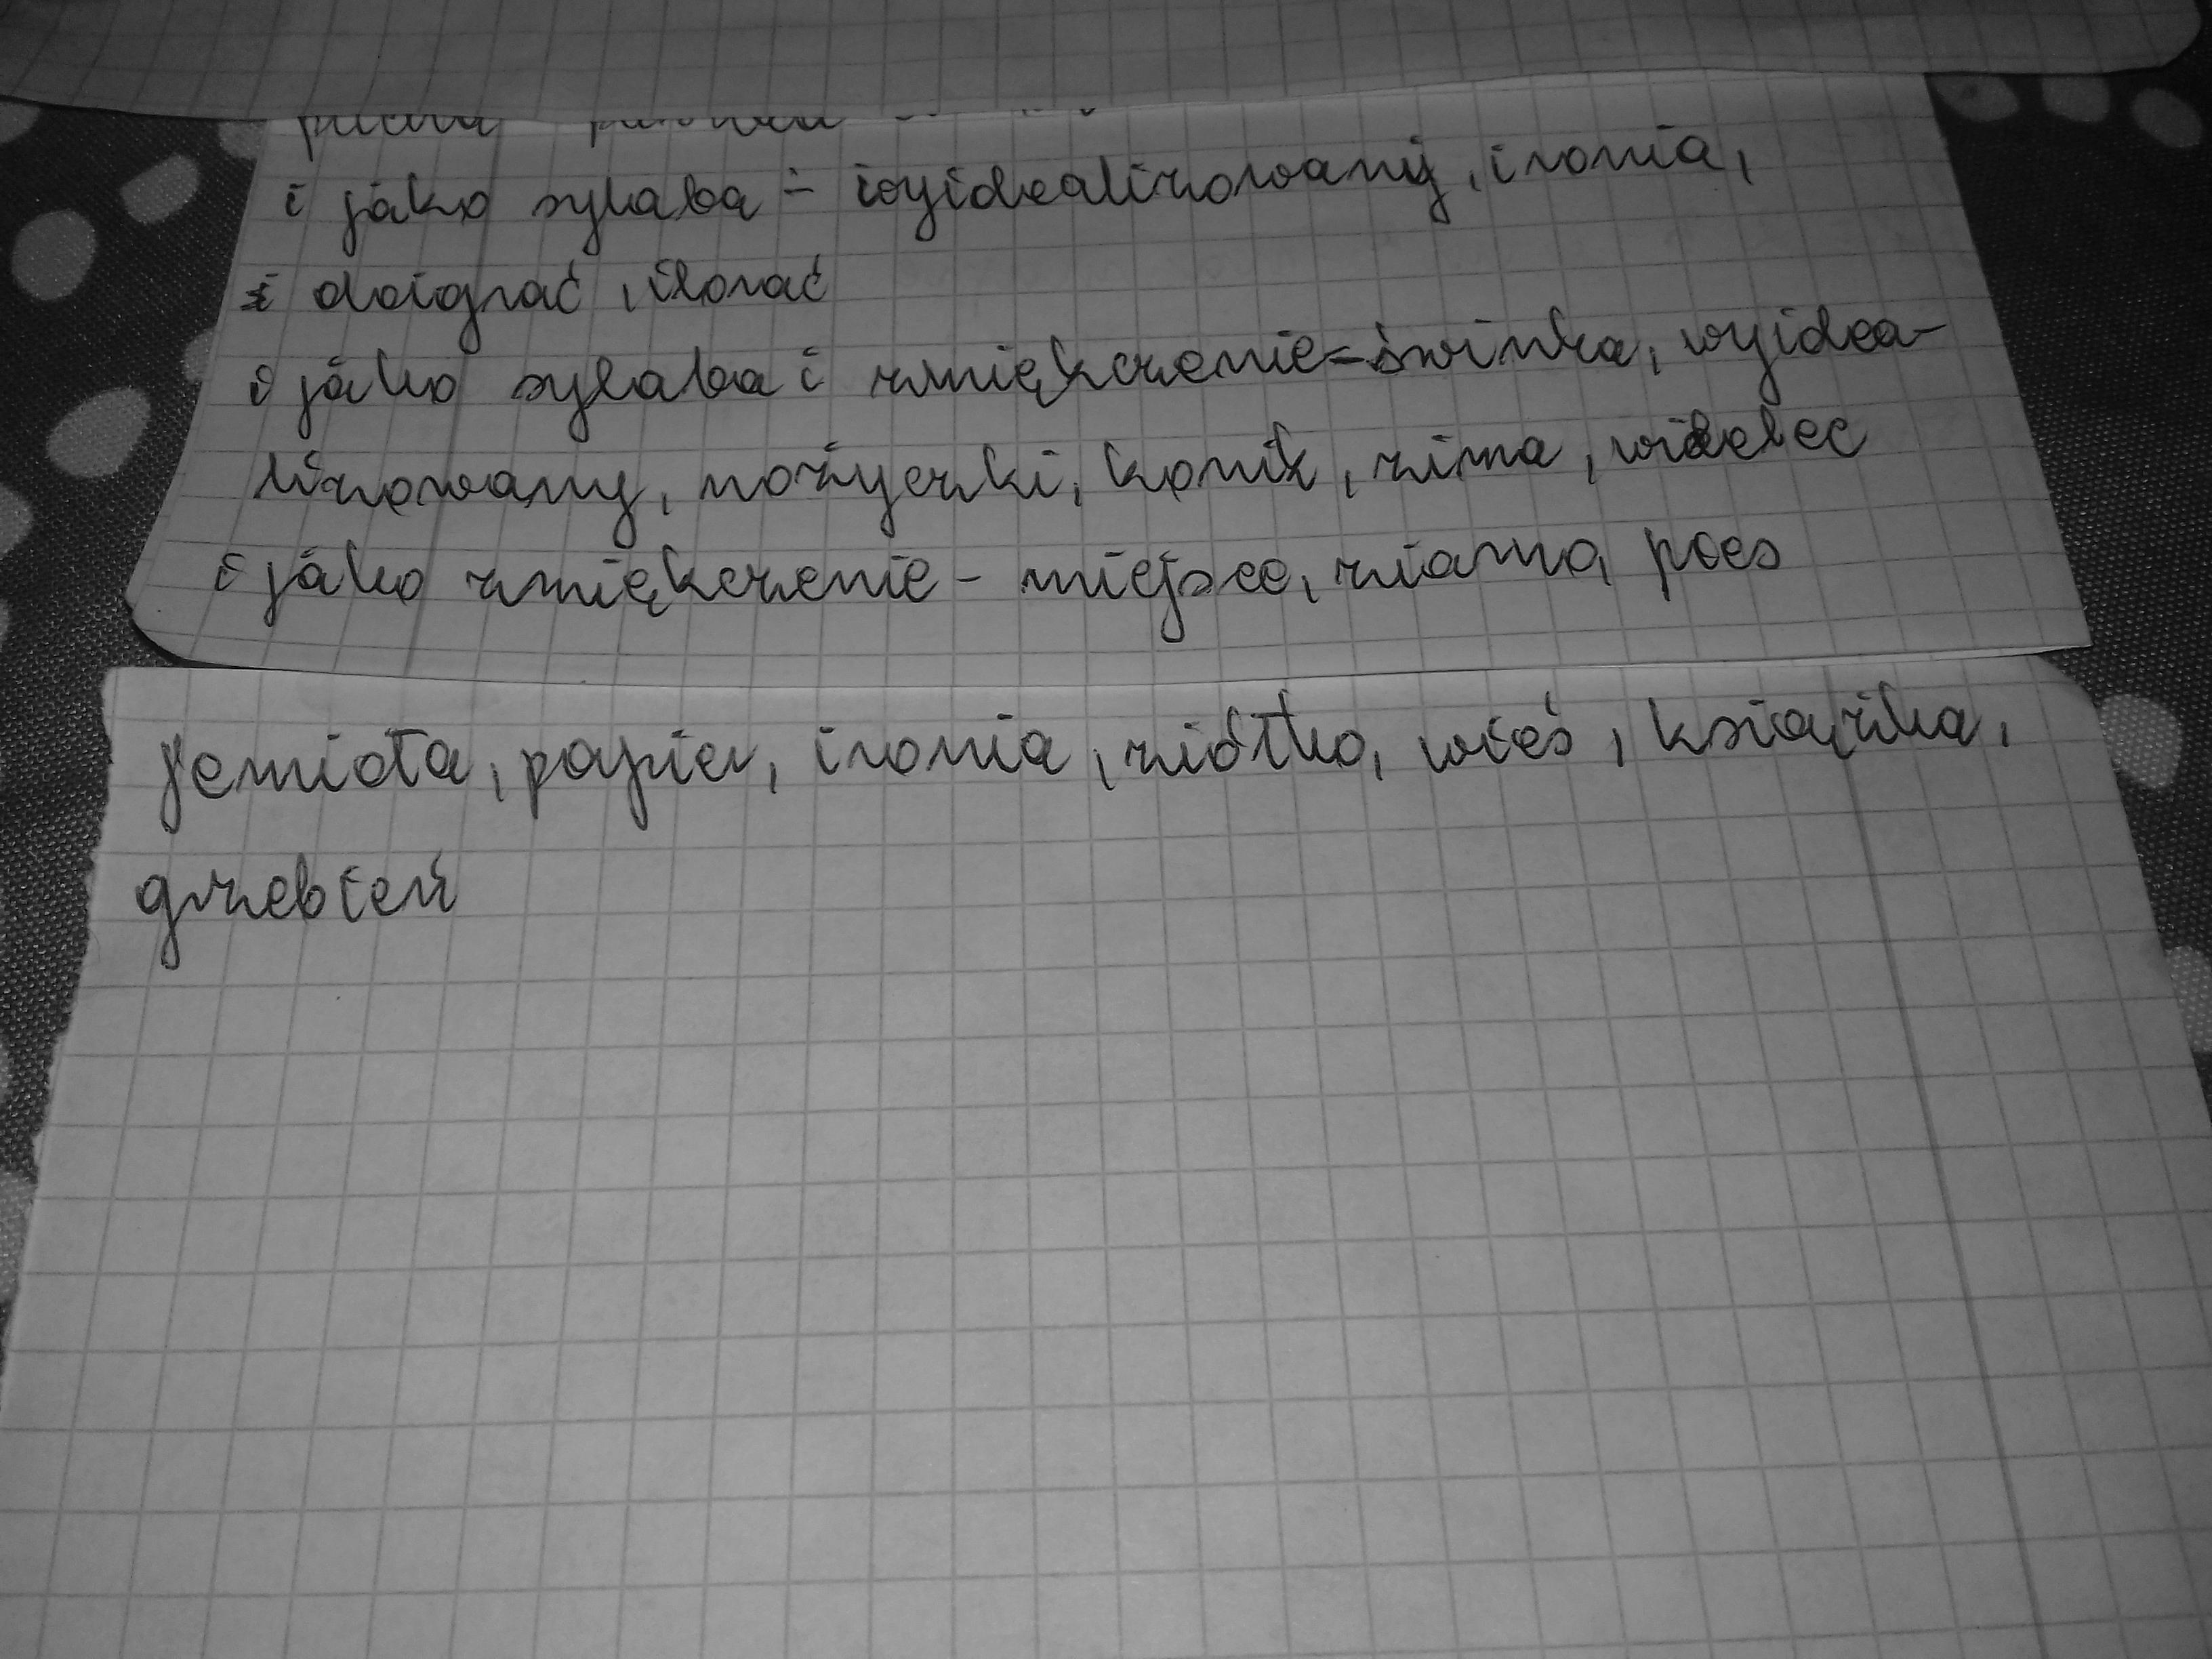 i jako sylaba - wyidealizowany, ironia,
i doigrać, ilorać
i jako sylaba i zmiękczenie - świnka, wyidea-
lizowany, nożyczki, konik, zima, widelec
i jako zmiękczenie - miejsce, ziarno, poes
jemioła, papier, ironia, ziółko, wieś, książka,
grzebień